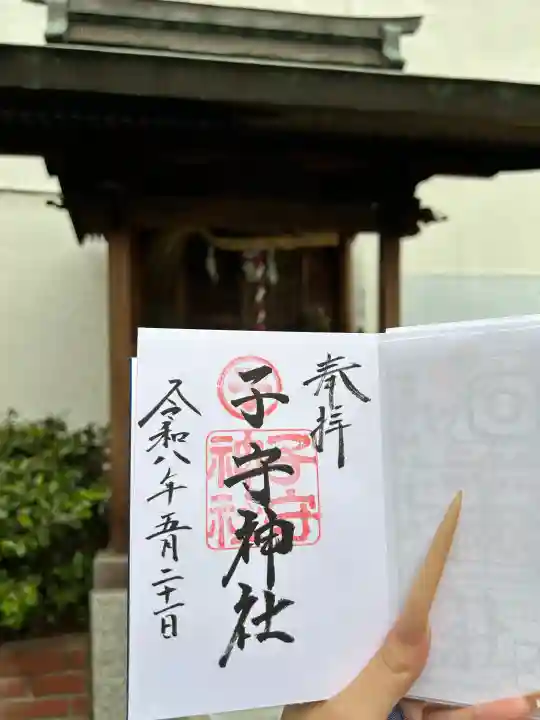 奉拝
子守神社
子守
神社
令和八年五月二十一日